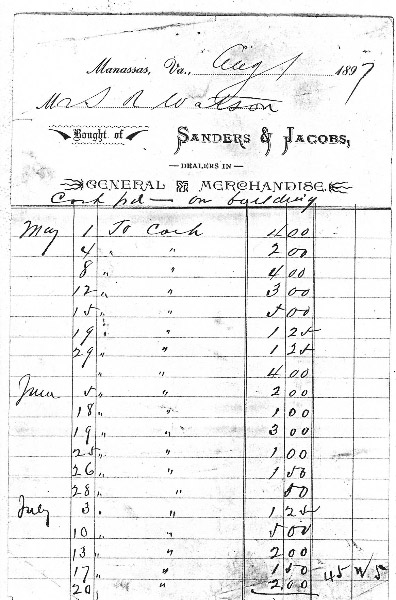 Manassas, Va., Aug 1 1897
Mr S R Watson
Bought of SANDERS & JACOBS,
—DEALERS IN—
GENERAL MERCHANDISE.
Cash pd — on building
May 1 To Cash 4 00
4 " " 2 00
8 " " 4 00
12 " " 3 00
15 " " 5 00
19 " " 1 25
29 " " 1 25
" " 4 00
June 5 " " 2 00
18 " " 1 00
19 " " 3 00
25 " " 1 00
26 " " 1 50
28 " " 50
July 3 " " 1 25
10 " " 5 00
13 " " 2 00
17 " " 1 50
20 " " 2 00 45